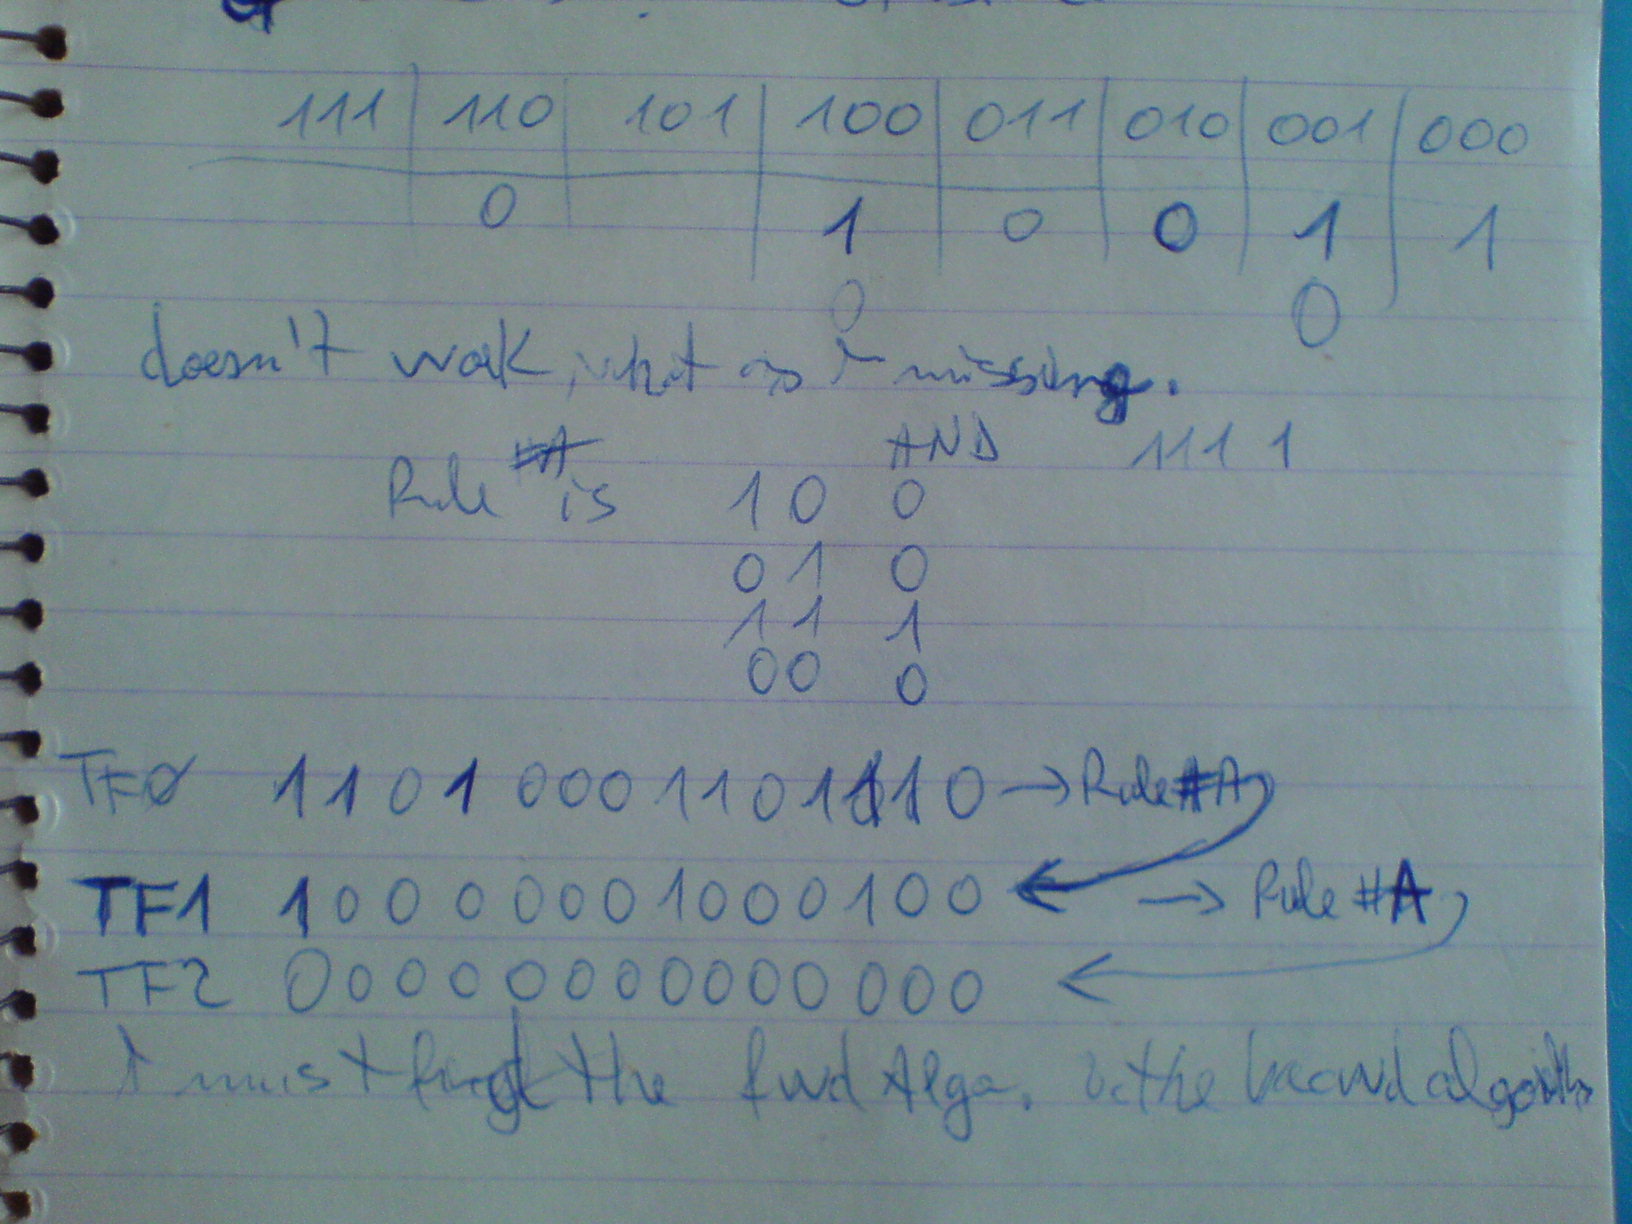 111 | 110 | 101 | 100 | 011 | 010 | 001 | 000
0 1 0 0 1 1
0 0
doesn't work, what is missing.
AND 1111
Rule #A is 10 0
01 0
11 1
00 0
TF0 11010001101110 → Rule #A
TF1 10000001000100 → Rule #A
TF2 00000000000000
I must find the fwd Algo. the algorithm